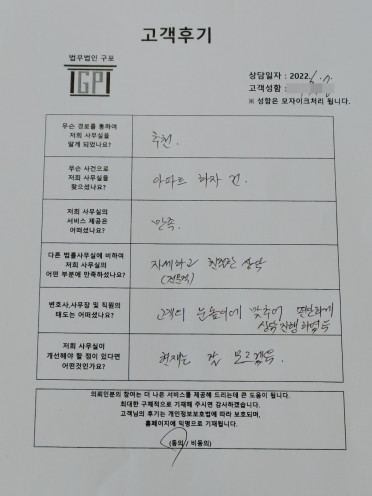 고객후기
법무법인 구포
GP
상담일자 : 2022. 6. 7.
고객성함 :
※ 성함은 모자이크처리 됩니다.
무슨 경로를 통하여
저희 사무실을
알게 되었나요?
추천.
무슨 사건으로
저희 사무실을
찾으셨나요?
아파트 하자 건.
저희 사무실의
서비스 제공은
어떠셨나요?
만족.
다른 법률사무실에 비하여
저희 사무실의
어떤 부분에 만족하셨나요?
자세하고 친절한 상담
(전문적)
변호사,사무장 및 직원의
태도는 어떠셨나요?
고객의 눈높이에 맞추어 편안하게
상담 진행하였음
저희 사무실이
개선해야 할 점이 있다면
어떤것인가요?
현재는 잘 모르겠음.
의뢰인분의 참여는 더 나은 서비스를 제공해 드리는데 큰 도움이 됩니다.
최대한 구체적으로 기재해 주시면 감사하겠습니다.
고객님의 후기는 개인정보보호법에 따라 보호되며,
홈페이지에 익명으로 기재됩니다.
(동의 / 비동의)